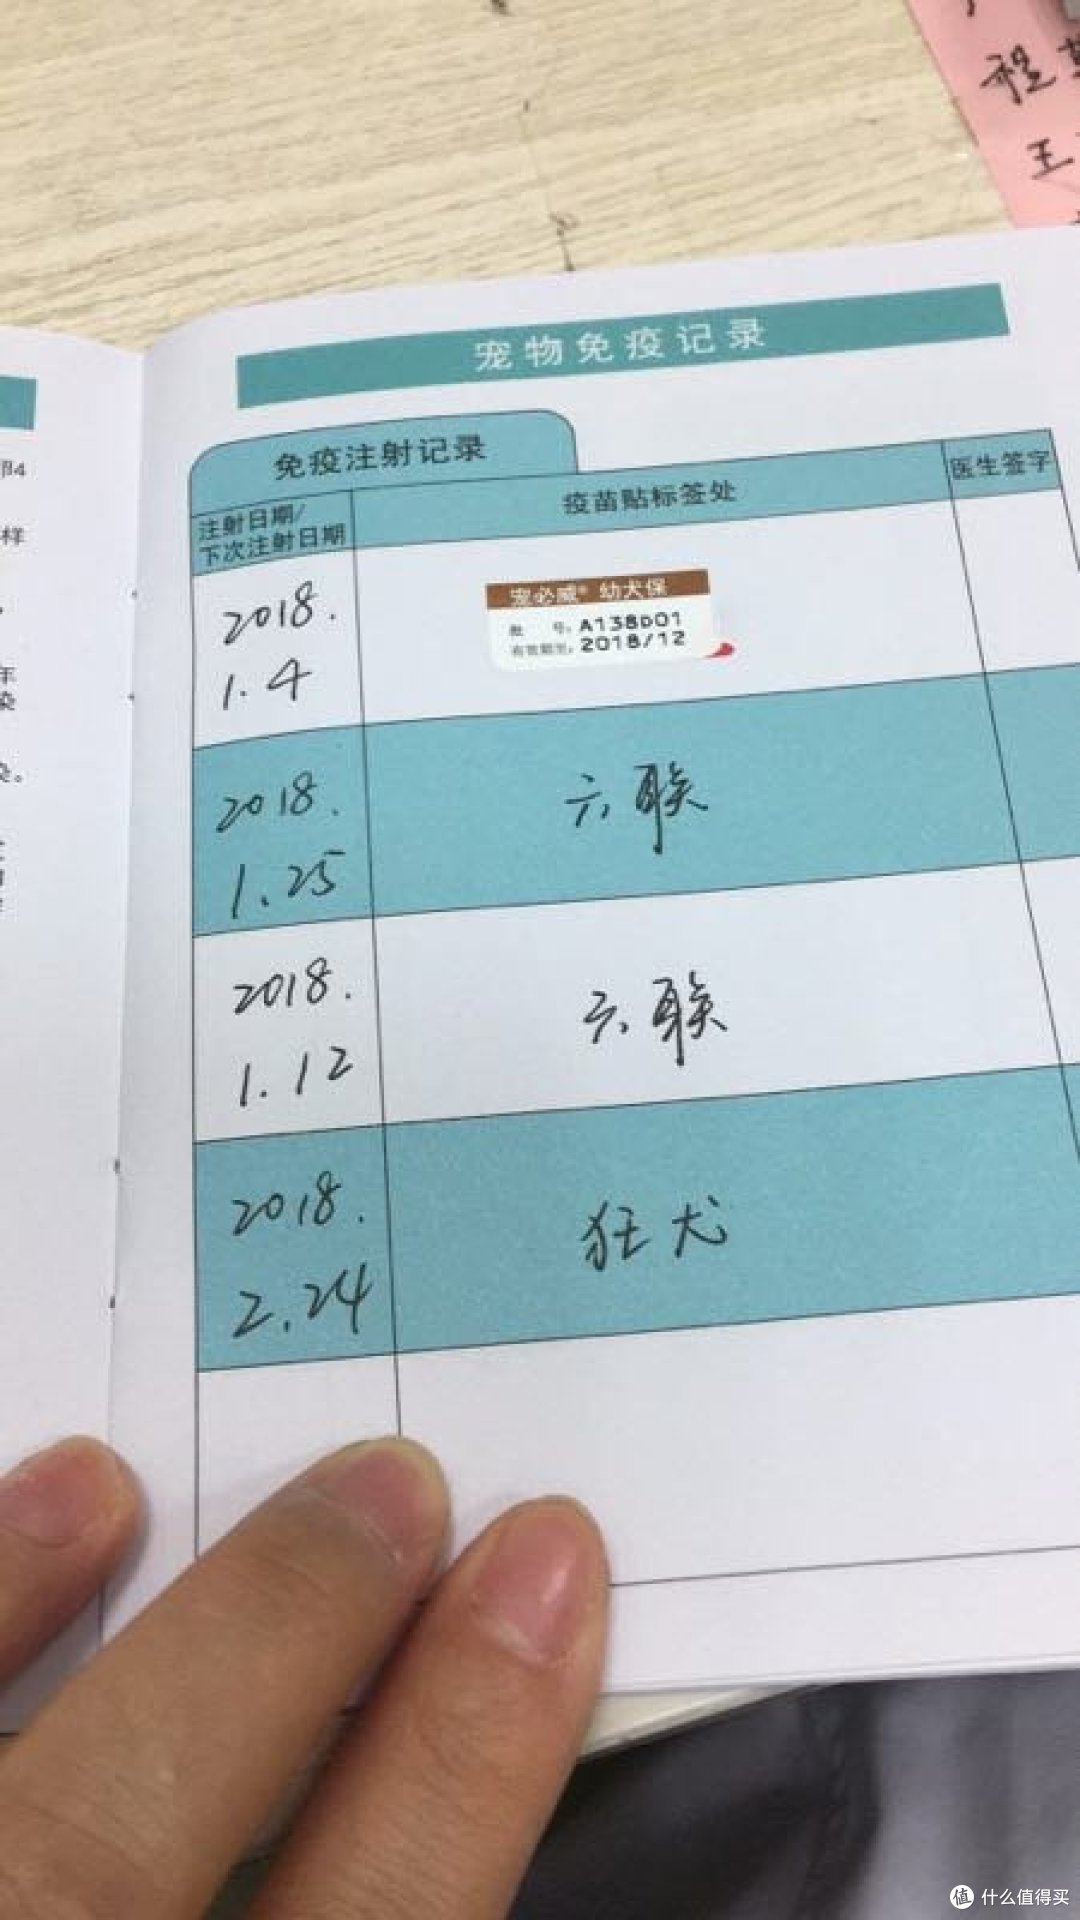 程
王
宠物免疫记录
免疫注射记录
注射日期/
下次注射日期
疫苗贴标签处
医生签字
2018.
1.4
宠必威® 幼犬保
批 号: A138D01
有效期至: 2018/12
2018.
1.25
六联
2018.
1.12
六联
2018.
2.24
狂犬
部4
样
年
染
值 什么值得买